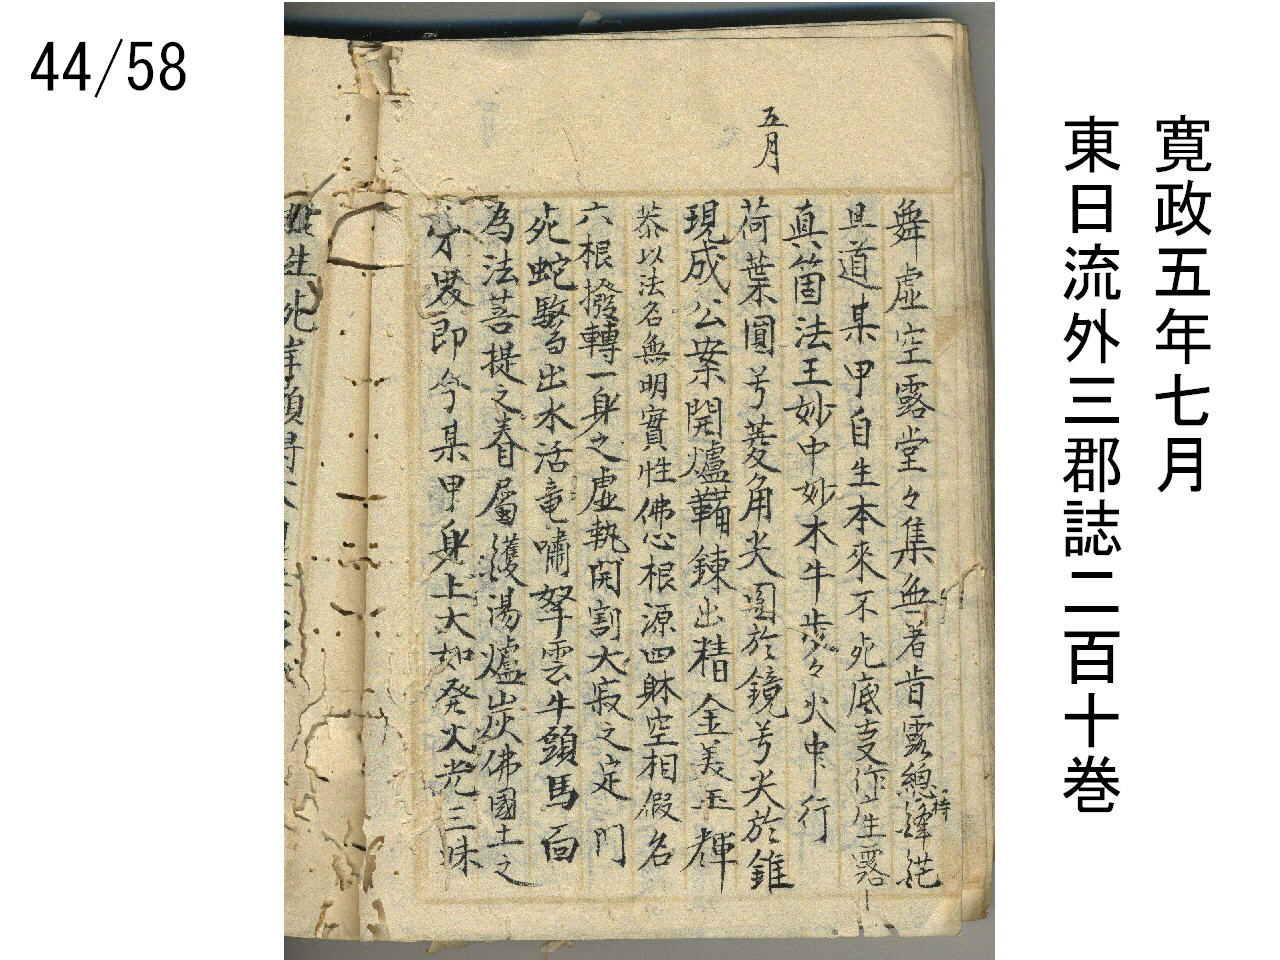 44/58
寛政五年七月
東日流外三郡誌二百十巻
五月
舞虚空露堂々集無著肯露總
且道某甲自生本來不死底支作產生露
真箇法王妙中妙木牛歩々火中行
荷葉圓兮菱角尖圓於鏡兮尖於錐
現成公案開爐鞴錬出精金美玉輝
恭以法名無明實性佛心根源四躰空相假名
六根撥轉一身之虚執開割大寂之定門
死蛇驚出水活竜嘯拏雲牛頭馬面
為法菩提之眷屬鑊湯爐炭佛國土之
即今某甲身上大如発火光三昧
無生死